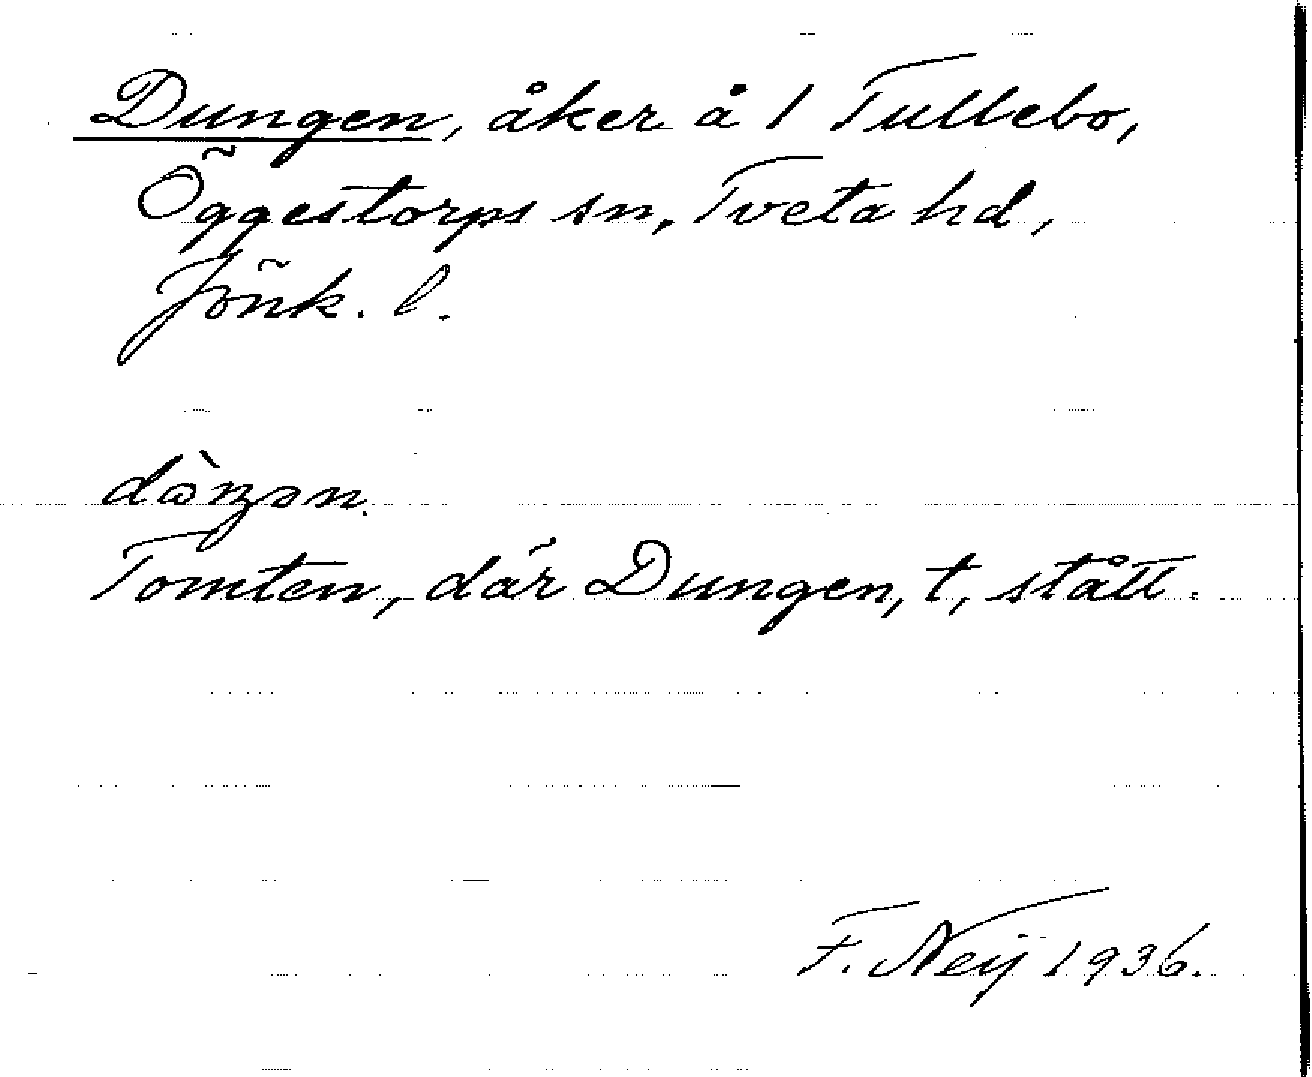 Dungen, åker å 1 Tullebo,
Öggestorps sn, Tveta hd,
Jönk. l.
Tomten, där Dungen, t, stått.
F. Neij 1936.